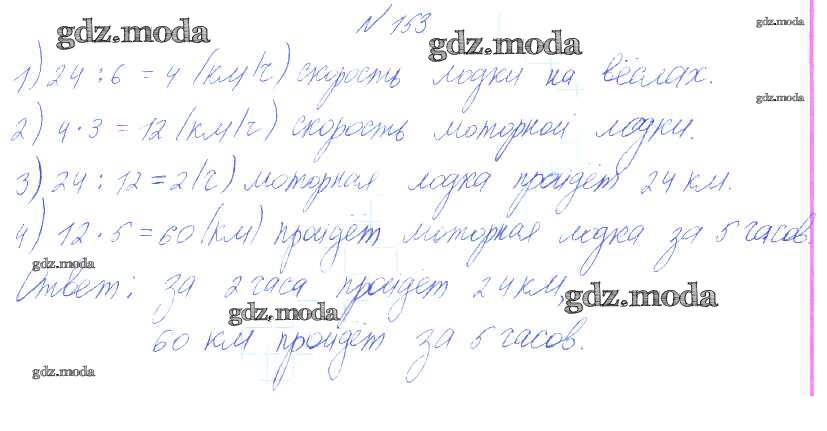 № 153
gdz.moda
gdz.moda
gdz.moda
1) 24 : 6 = 4 (км/ч) скорость лодки на вёслах.
gdz.moda
2) 4 · 3 = 12 (км/ч) скорость моторной лодки.
3) 24 : 12 = 2 (ч) моторная лодка пройдёт 24 км.
4) 12 · 5 = 60 (км) пройдёт моторная лодка за 5 часов.
gdz.moda
Ответ: за 2 часа пройдёт 24 км,
gdz.moda
gdz.moda
60 км пройдёт за 5 часов.
gdz.moda